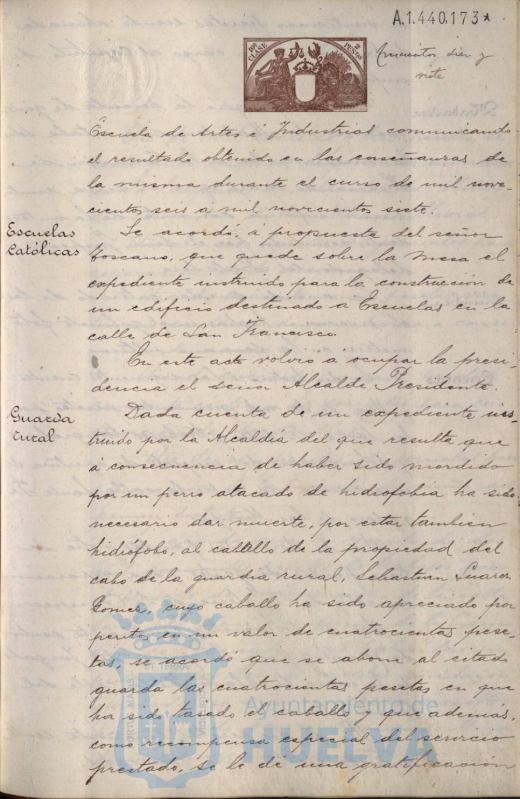 A.1.440.173*
10ª CLASE
2 PESETAS
diez y
siete
Escuela de Artes é Industrias comunicando
el resultado obtenido en las enseñanzas de
la misma durante el curso de mil nove-
cientos seis a mil novecientos siete.
Escuelas
católicas
Se acordó, á propuesta del señor
Toscano, que quede sobre la mesa el
expediente instruido para la construcción de
un edificio destinado a Escuelas en la
calle de San Francisco.
En este acto volvió á ocupar la presi-
dencia el señor Alcalde Presidente.
Guarda
rural
Dada cuenta de un expediente ins-
truido por la Alcaldia del que resulta que
á consecuencia de haber sido mordido
por un perro atacado de hidrofobia ha sido
necesario dar muerte, por estar tambien
hidrófobo, al caballo de la propiedad del
cabo de la guardia rural, Sebastian Suarez
Gomez, cuyo caballo ha sido apreciado por
peritos en un valor de cuatrocientas pese-
tas, se acordó que se abone al citado
guarda las cuatrocientas pesetas en que
ha sido tasado el caballo y que además,
como recompensa especial del servicio
prestado, se le dé una gratificación
Ayuntamiento de
HUELVA